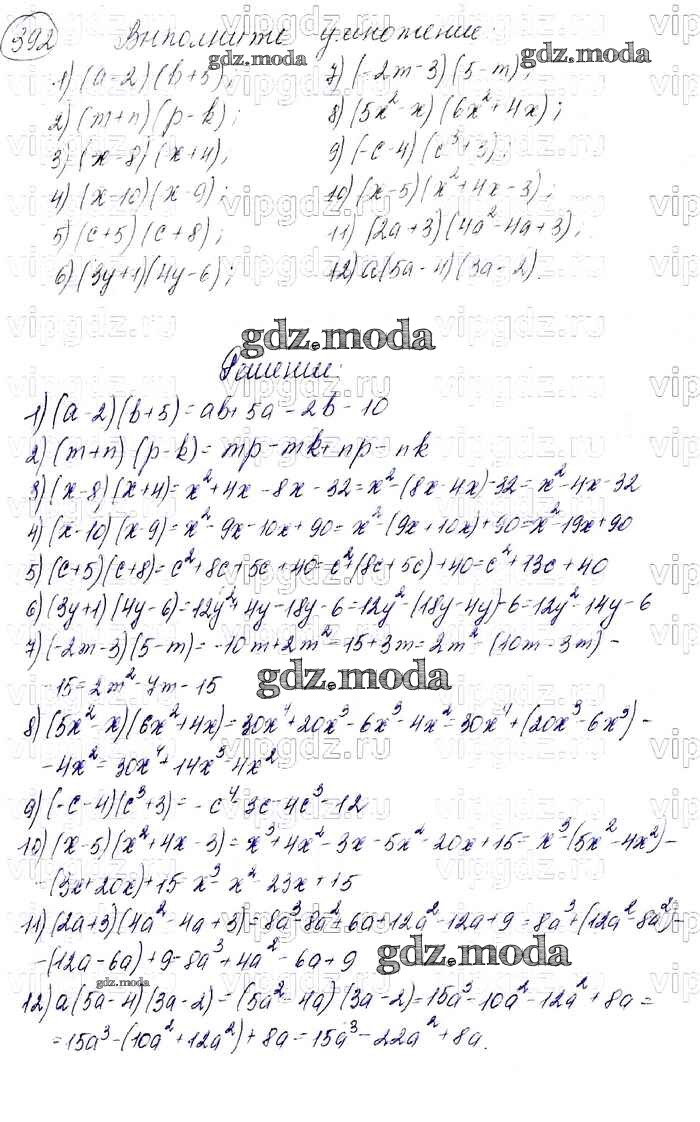 392 Выполните умножение:
1) (a-2)(b+5); 7) (-2m-3)(5-m);
2) (m+n)(p-k); 8) (5x²-x)(6x²+4x);
3) (x-8)(x+4); 9) (-c-4)(c³+3);
4) (x-10)(x-9); 10) (x-5)(x²+4x-3);
5) (c+5)(c+8); 11) (2a+3)(4a²-4a+3);
6) (3y+1)(4y-6); 12) a(5a-4)(3a-2).
gdz.moda
Решение:
1) (a-2)(b+5)=ab+5a-2b-10
2) (m+n)(p-k)=mp-mk+np-nk
3) (x-8)(x+4)=x²+4x-8x-32=x²-(8x-4x)-32=x²-4x-32
4) (x-10)(x-9)=x²-9x-10x+90=x²-(9x+10x)+90=x²-19x+90
5) (c+5)(c+8)=c²+8c+5c+40=c²+(8c+5c)+40=c²+13c+40
6) (3y+1)(4y-6)=12y²+4y-18y-6=12y²-(18y-4y)-6=12y²-14y-6
7) (-2m-3)(5-m)=-10m+2m²-15+3m=2m²-(10m-3m)-
-15=2m²-7m-15
gdz.moda
8) (5x²-x)(6x²+4x)=30x⁴+20x³-6x³-4x²=30x⁴+(20x³-6x³)-
-4x²=30x⁴+14x³-4x²
9) (-c-4)(c³+3)=-c⁴-3c-4c³-12
10) (x-5)(x²+4x-3)=x³+4x²-3x-5x²-20x+15=x³-(5x²-4x²)-
-(3x+20x)+15=x³-x²-23x+15
11) (2a+3)(4a²-4a+3)=8a³-8a²+6a+12a²-12a+9=8a³+(12a²-8a²)-
-(12a-6a)+9=8a³+4a²-6a+9
gdz.moda
gdz.moda
12) a(5a-4)(3a-2)=(5a²-4a)(3a-2)=15a³-10a²-12a²+8a=
=15a³-(10a²+12a²)+8a=15a³-22a²+8a.
gdz.moda
vipgdz.ru